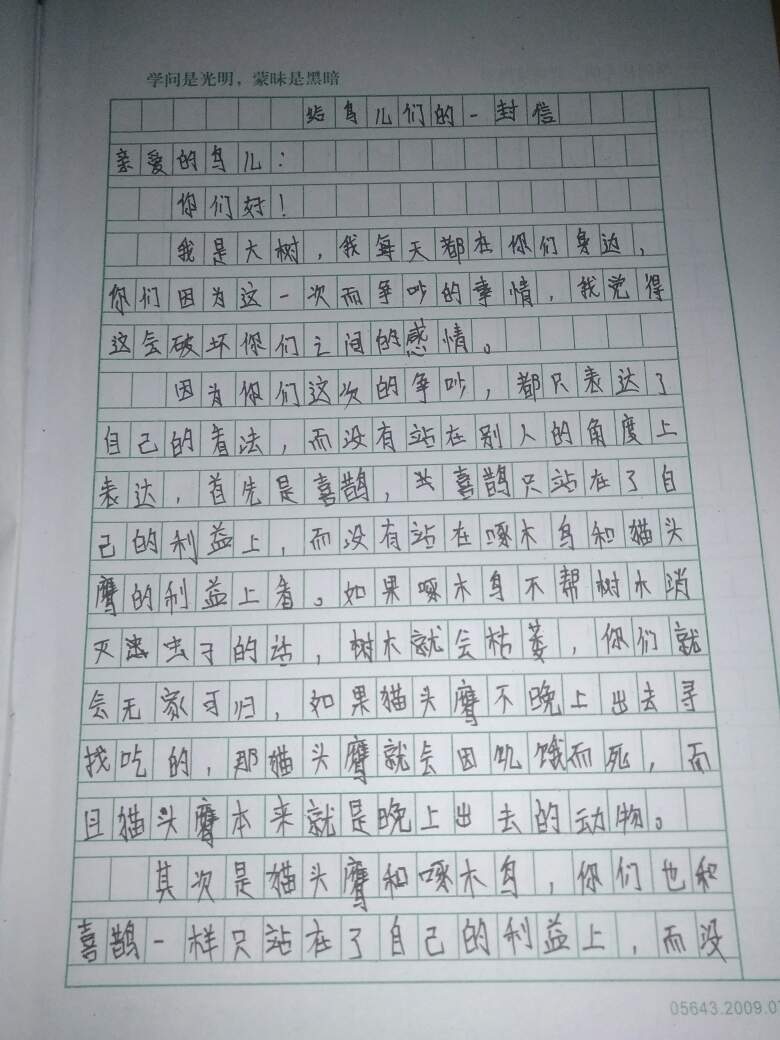 学问是光明，蒙昧是黑暗
给鸟儿们的一封信
亲爱的鸟儿：
你们好！
我是大树，我每天都在你们身边，
你们因为这一次而争吵的事情，我觉得
这会破坏你们之间的感情。
因为你们这次的争吵，都只表达了
自己的看法，而没有站在别人的角度上
表达，首先是喜鹊，喜鹊只站在了自
己的利益上，而没有站在啄木鸟和猫头
鹰的利益上看。如果啄木鸟不帮树木消
灭虫子的话，树木就会枯萎，你们就
会无家可归，如果猫头鹰不晚上出去寻
找吃的，那猫头鹰就会因饥饿而死，而
且猫头鹰本来就是晚上出去的动物。
其次是猫头鹰和啄木鸟，你们也和
喜鹊一样只站在了自己的利益上，而没
05643.2009.07